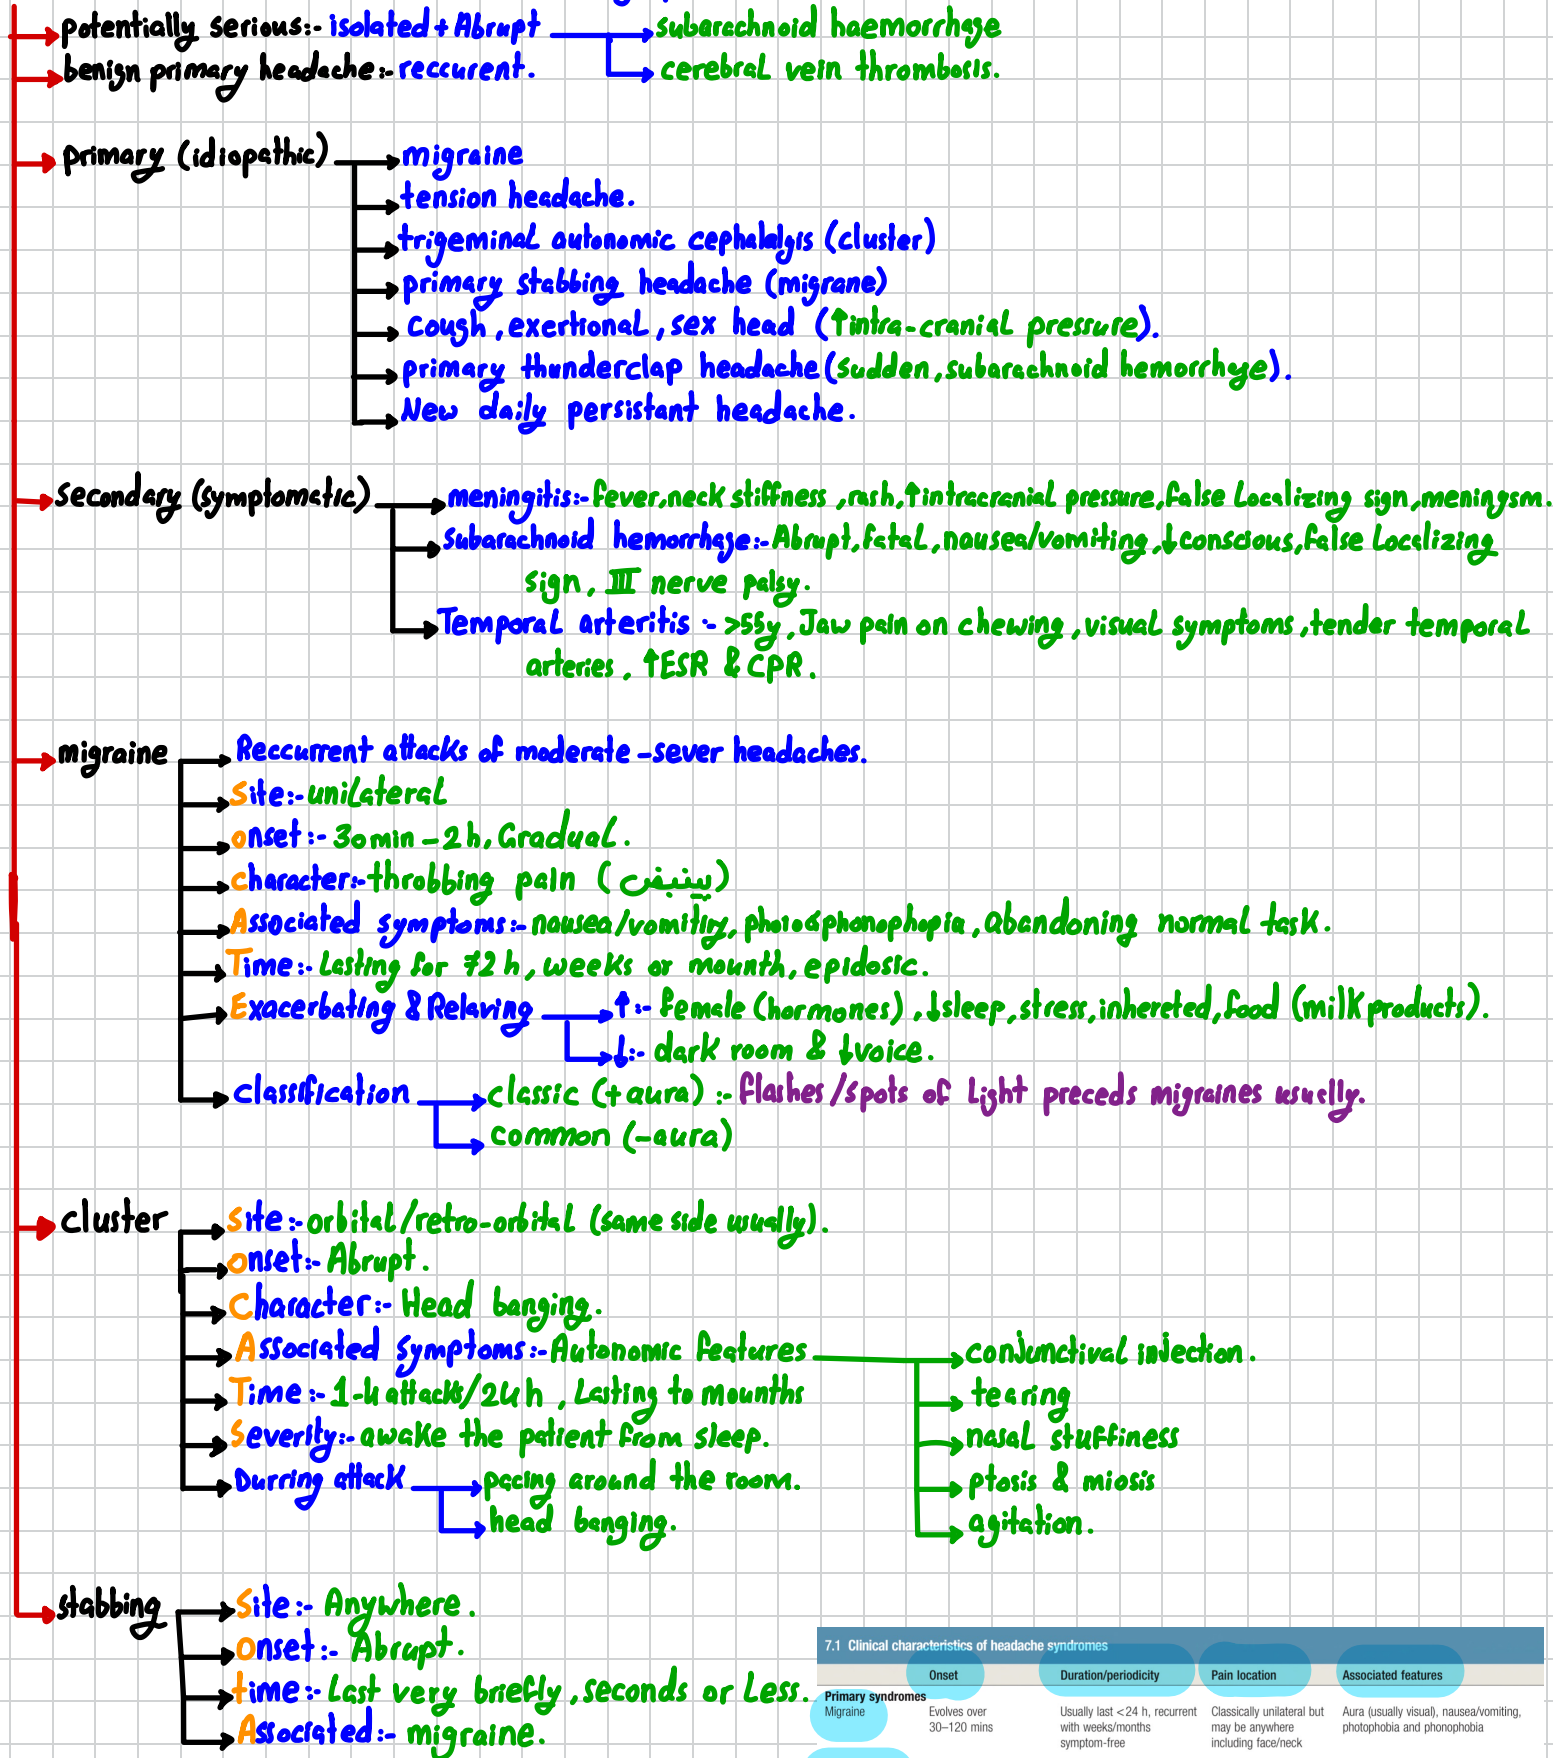 potentially serious:- isolated + Abrupt → subarachnoid haemorrhage
benign primary headache:- reccurent. → cerebral vein thrombosis.
primary (idiopathic) → migraine
→ tension headache.
→ trigeminal autonomic cephalalgis (cluster)
→ primary stabbing headache (migrane)
→ cough, exertional, sex head (↑intra-cranial pressure).
→ primary thunderclap headache (sudden, subarachnoid hemorrhage).
→ New daily persistant headache.
secondary (symptomatic) → meningitis:- fever, neck stiffness, rash, ↑intracranial pressure, false Localizing sign, meningsm.
→ subarachnoid hemorrhage:- Abrupt, fatal, nausea/vomiting, ↓conscious, false Localizing
sign, III nerve palsy.
→ Temporal arteritis :- >55y, Jaw pain on chewing, visual symptoms, tender temporal
arteries, ↑ESR & CPR.
migraine → Reccurrent attacks of moderate-sever headaches.
→ Site:- unilateral
→ onset:- 30min - 2h, Gradual.
→ character:- throbbing pain (بينبض)
→ Associated symptoms:- nausea/vomitiry, photo&phonophopia, abandoning normal task.
→ Time:- Lasting for 72h, weeks or mounth, epidosic.
→ Exacerbating & Relaving → ↑:- female (hormones), ↓sleep, stress, inhereted, food (milk products).
→ ↓:- dark room & ↓voice.
→ classification → classic (+aura) :- flashes/spots of Light preceds migraines usually.
→ common (-aura)
cluster → Site:- orbital/retro-orbital (same side usually).
→ onset:- Abrupt.
→ Character:- Head banging.
→ Associated symptoms:- Autonomic features → conjunctival injection.
→ Time:- 1-4 attacks/24h, Lasting to mounths → tearing
→ Severity:- awake the patient from sleep. → nasal stuffiness
→ Durring attack → pacing around the room. → ptosis & miosis
→ head banging. → agitation.
stabbing → Site:- Anywhere.
→ onset:- Abrupt.
→ time:- Last very briefly, seconds or Less.
→ Associated:- migraine.
7.1 Clinical characteristics of headache syndromes
Onset Duration/periodicity Pain location Associated features
Primary syndromes
Migraine Evolves over Usually last <24 h, recurrent Classically unilateral but Aura (usually visual), nausea/vomiting,
30–120 mins with weeks/months may be anywhere photophobia and phonophobia
symptom-free including face/neck